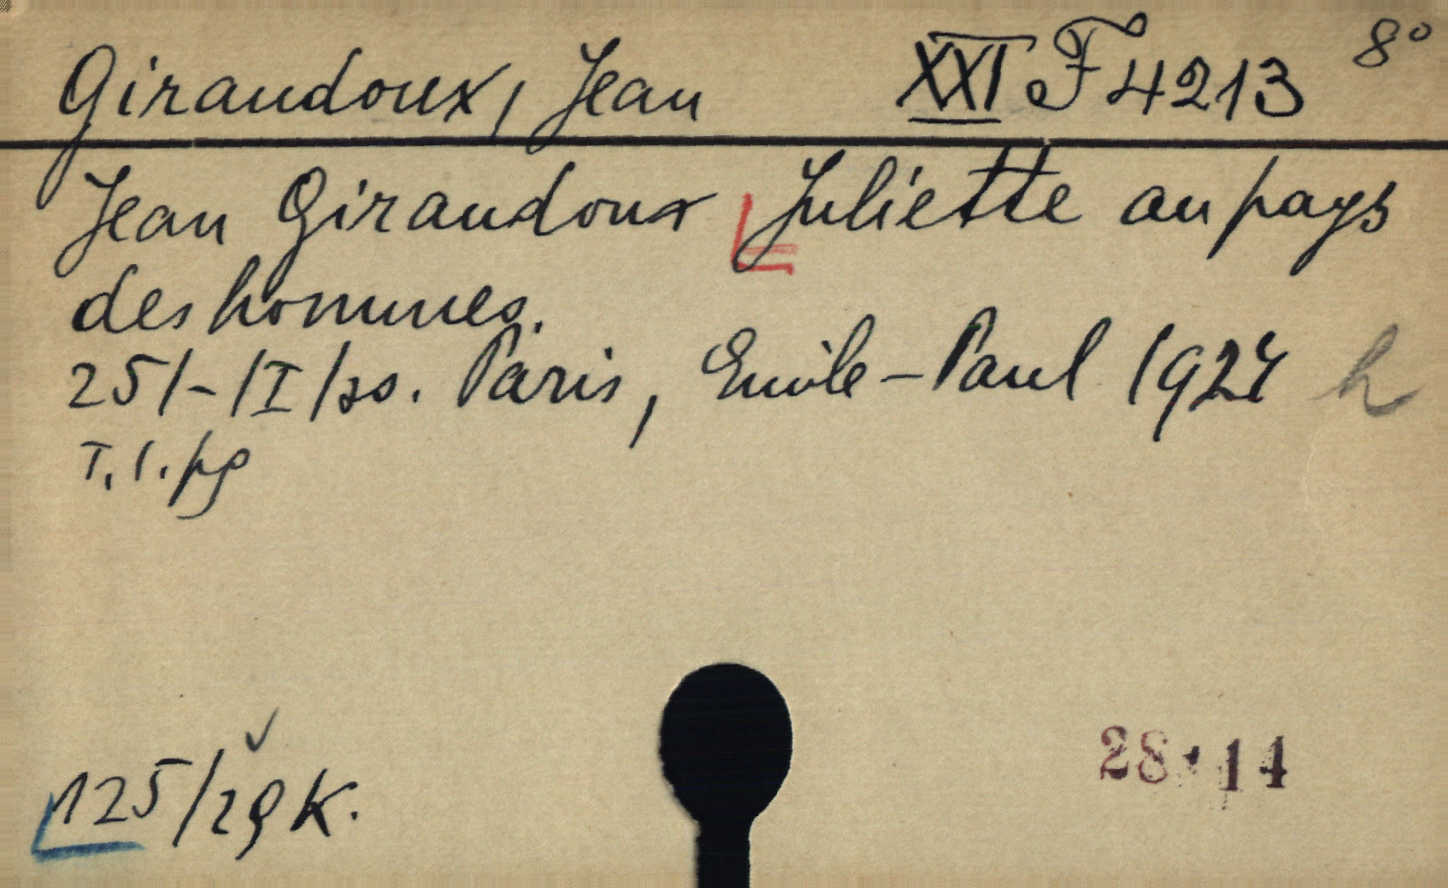 Giraudoux, Jean XXI F 4213 8°
Jean Giraudoux Juliette au pays
des hommes.
25/-/I/so. Paris, Emile-Paul 1924 h
T. 1. pp
125/29 K.
28 • 14